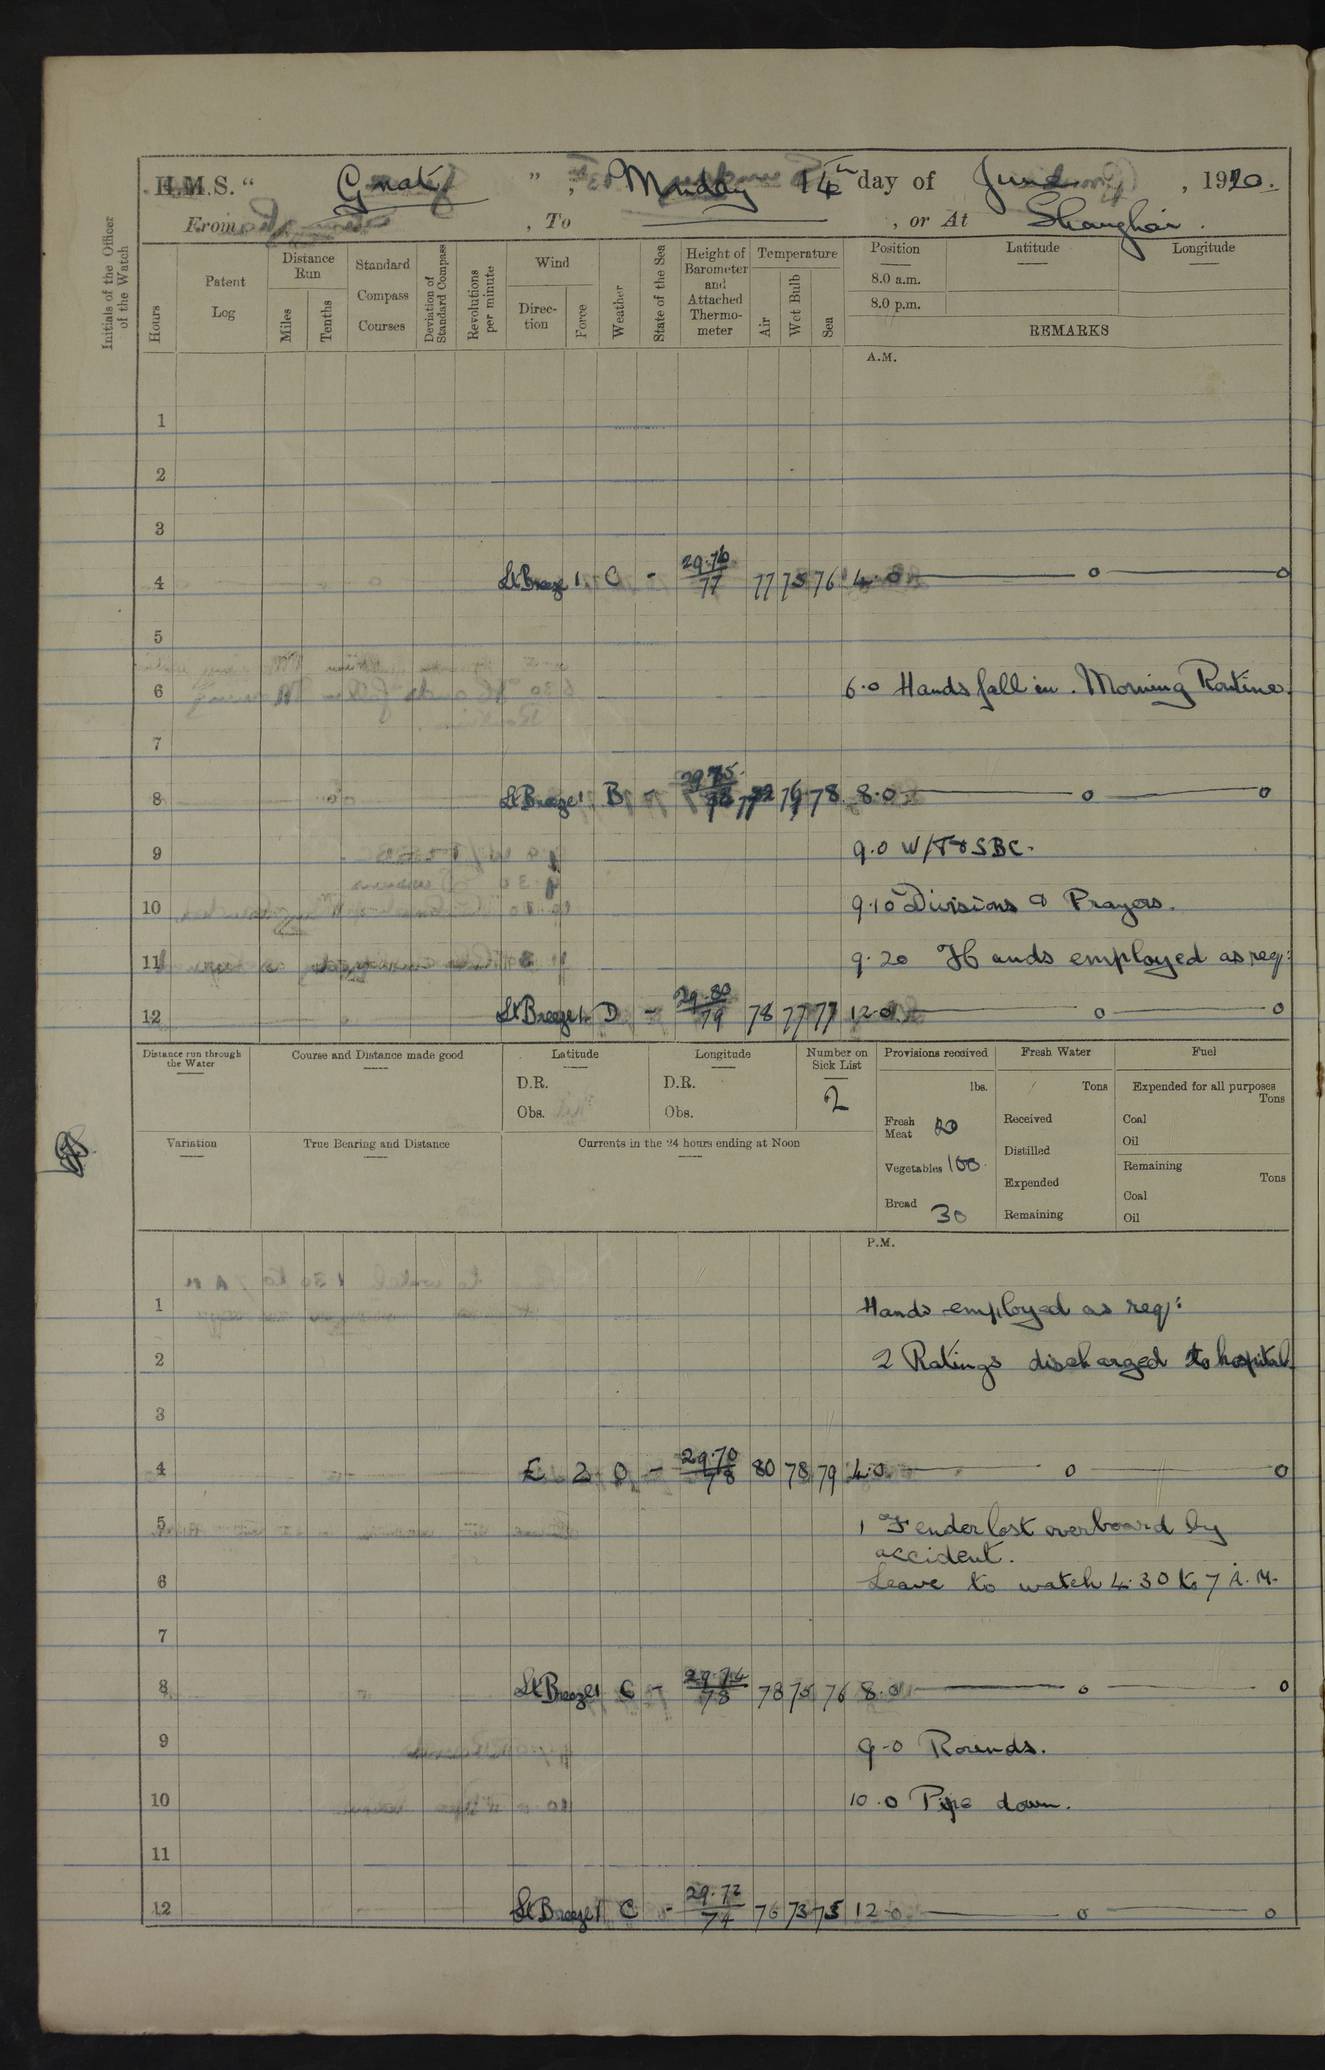 H.M.S. “ Gnat ” , Monday 14th day of June , 1920.
From , To , or At Shanghai .
Initials of the Officer of the Watch
Hours
Patent Log
Distance Run
Miles
Tenths
Standard Compass Courses
Deviation of Standard Compass
Revolutions per minute
Wind
Direction
Force
Weather
State of the Sea
Height of Barometer and Attached Thermometer
Temperature
Air
Wet Bulb
Sea
Position Latitude Longitude
8.0 a.m.
8.0 p.m.
REMARKS
A.M.
1
2
3
4 Lt Breeze 1 C - 29.76 / 77 77 75 76 4.0 — o — o
5
6 6.0 Hands fall in. Morning Routine.
7
8 Lt Breeze 1 B - 29.75 / 78 79 78 8.0 — o — o
9 9.0 W/T & SBC.
10 9.10 Divisions & Prayers.
11 9.20 Hands employed as req:
12 Lt Breeze 1 D - 29.80 / 79 78 77 77 12.0 — o — o
Distance run through the Water
Course and Distance made good
Latitude
D.R.
Obs.
Longitude
D.R.
Obs.
Number on Sick List
2
Provisions received
lbs.
Fresh Meat 20
Vegetables 100
Bread 30
Fresh Water
Tons
Received
Distilled
Expended
Remaining
Fuel
Expended for all purposes
Tons
Coal
Oil
Remaining
Tons
Coal
Oil
Variation
True Bearing and Distance
Currents in the 24 hours ending at Noon
P.M.
1 Hands employed as req:
2 2 Ratings discharged to hospital.
3
4 E 2 O - 29.70 / 78 80 78 79 4.0 — o — o
5 1 Fender lost overboard by
accident.
6 Leave to watch 4.30 to 7 A.M.
7
8 Lt Breeze 1 C - 29.74 / 78 78 75 76 8.0 — o — o
9 9.0 Rounds.
10 10.0 Pipe down.
11
12 Lt Breeze 1 C - 29.72 / 74 76 73 75 12.0 — o — o